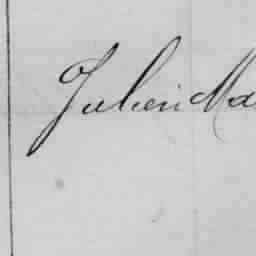 Julien Ma